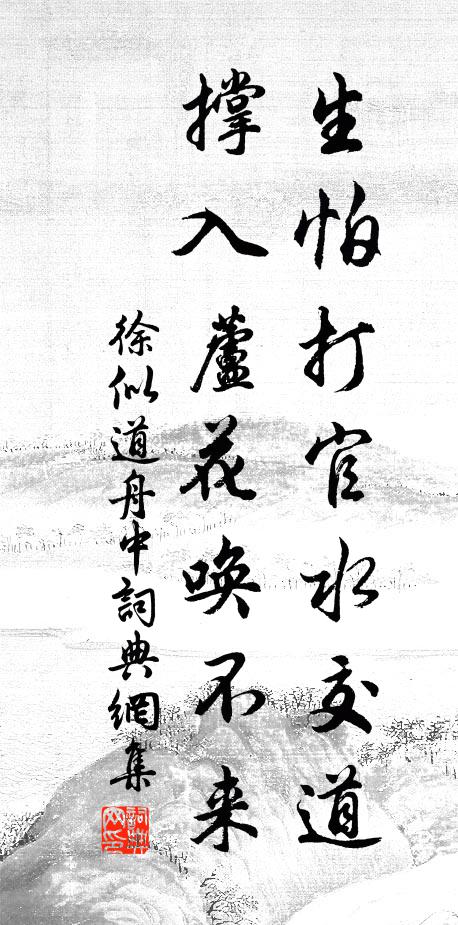 生怕打官水交道
撑入蘆花喚不来
徐似道舟中詞典網集